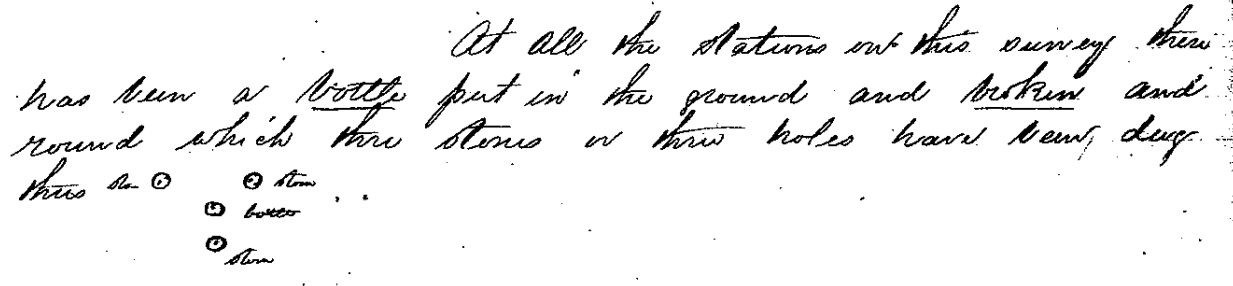 At all the stations on this survey there
has been a bottle put in the ground and broken and
round which three stones or three holes have been dug
thus sto stone
bottle
stone